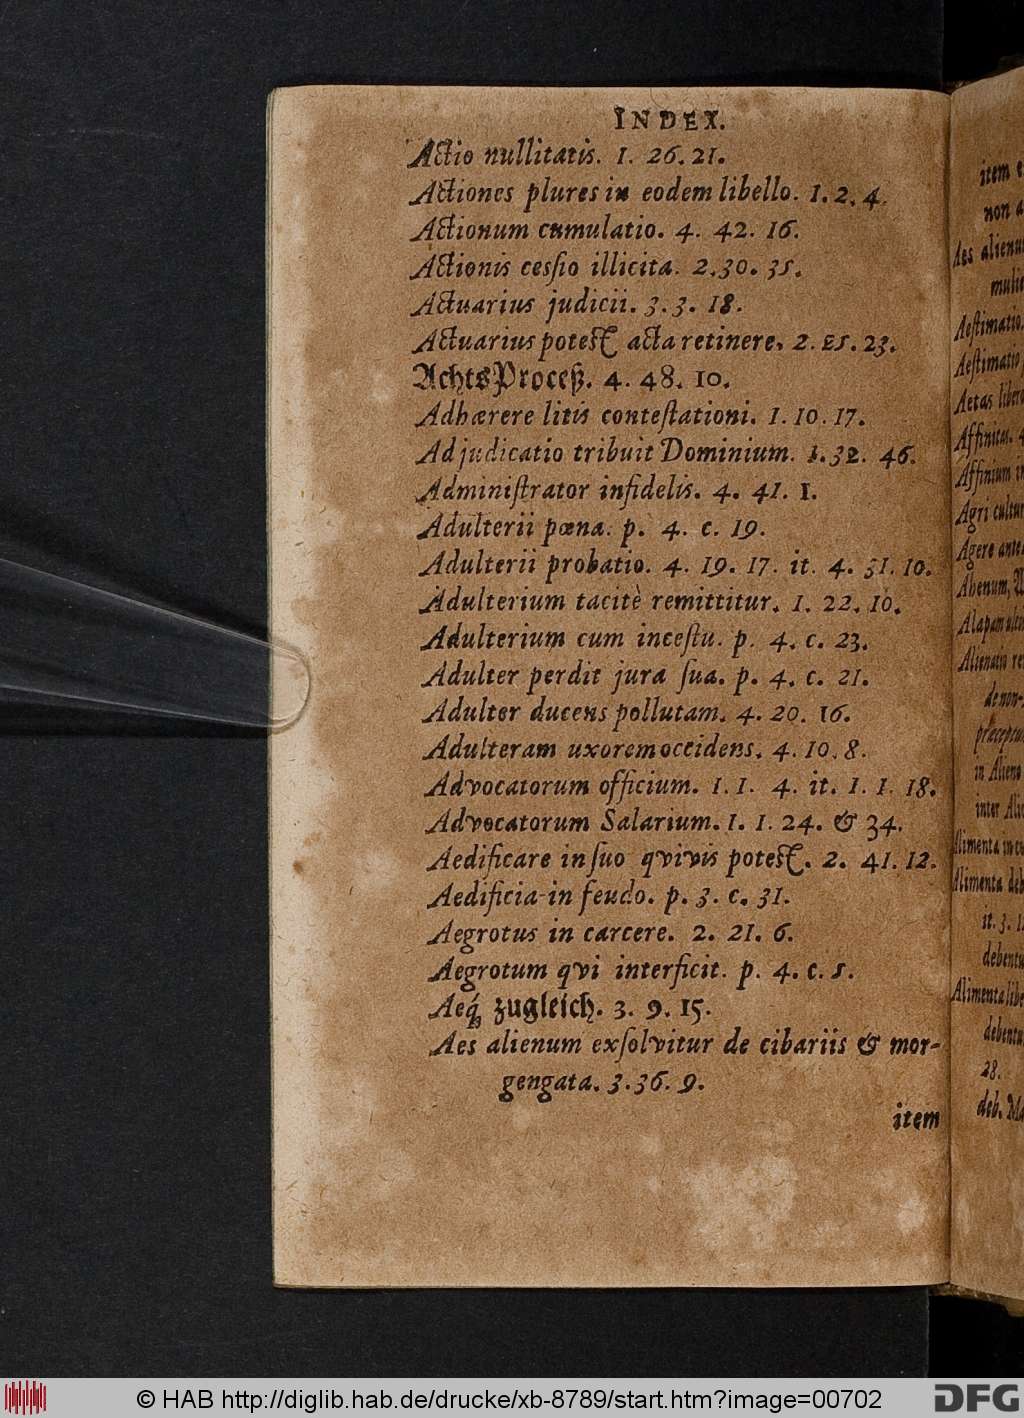 INDEX.
Actio nullitatis. 1. 26. 21.
Actiones plures in eodem libello. 1. 2. 4.
Actionum cumulatio. 4. 42. 16.
Actionis cesſio illicita. 2. 30. 35.
Actuarius judicii. 3. 3. 18.
Actuarius poteſt acta retinere. 2. 25. 23.
AchtsProceß. 4. 48. 10.
Adhærere litis conteſtationi. 1. 10. 17.
Adjudicatio tribuit Dominium. 1. 32. 46.
Adminiſtrator infidelis. 4. 41. 1.
Adulterii pœna. p. 4. c. 19.
Adulterii probatio. 4. 19. 17. it. 4. 31. 10.
Adulterium tacitè remittitur. 1. 22. 10.
Adulterium cum inceſtu. p. 4. c. 23.
Adulter perdit jura ſua. p. 4. c. 21.
Adulter ducens pollutam. 4. 20. 16.
Adulteram uxorem occidens. 4. 10. 8.
Advocatorum officium. 1. 1. 4. it. 1. 1. 18.
Advocatorum Salarium. 1. 1. 24. & 34.
Aedificare in ſuo qvivis poteſt. 2. 41. 12.
Aedificia in feudo. p. 3. c. 31.
Aegrotus in carcere. 2. 21. 6.
Aegrotum qvi interficit. p. 4. c. 5.
Aeq́; zugleich. 3. 9. 15.
Aes alienum exſolvitur de cibariis & mor-
gengata. 3. 36. 9.
item
item
non
Aes
Aeſtimatio.
Aeſtimatio
Aetas
Affinitas.
Affinium
Agri
Agere
Ahenum,
Alienatio
in Alieno
inter
Alimenta
Alimenta
it. 3.
Alimenta
28.
deb.
© HAB http://diglib.hab.de/drucke/xb-8789/start.htm?image=00702
DFG